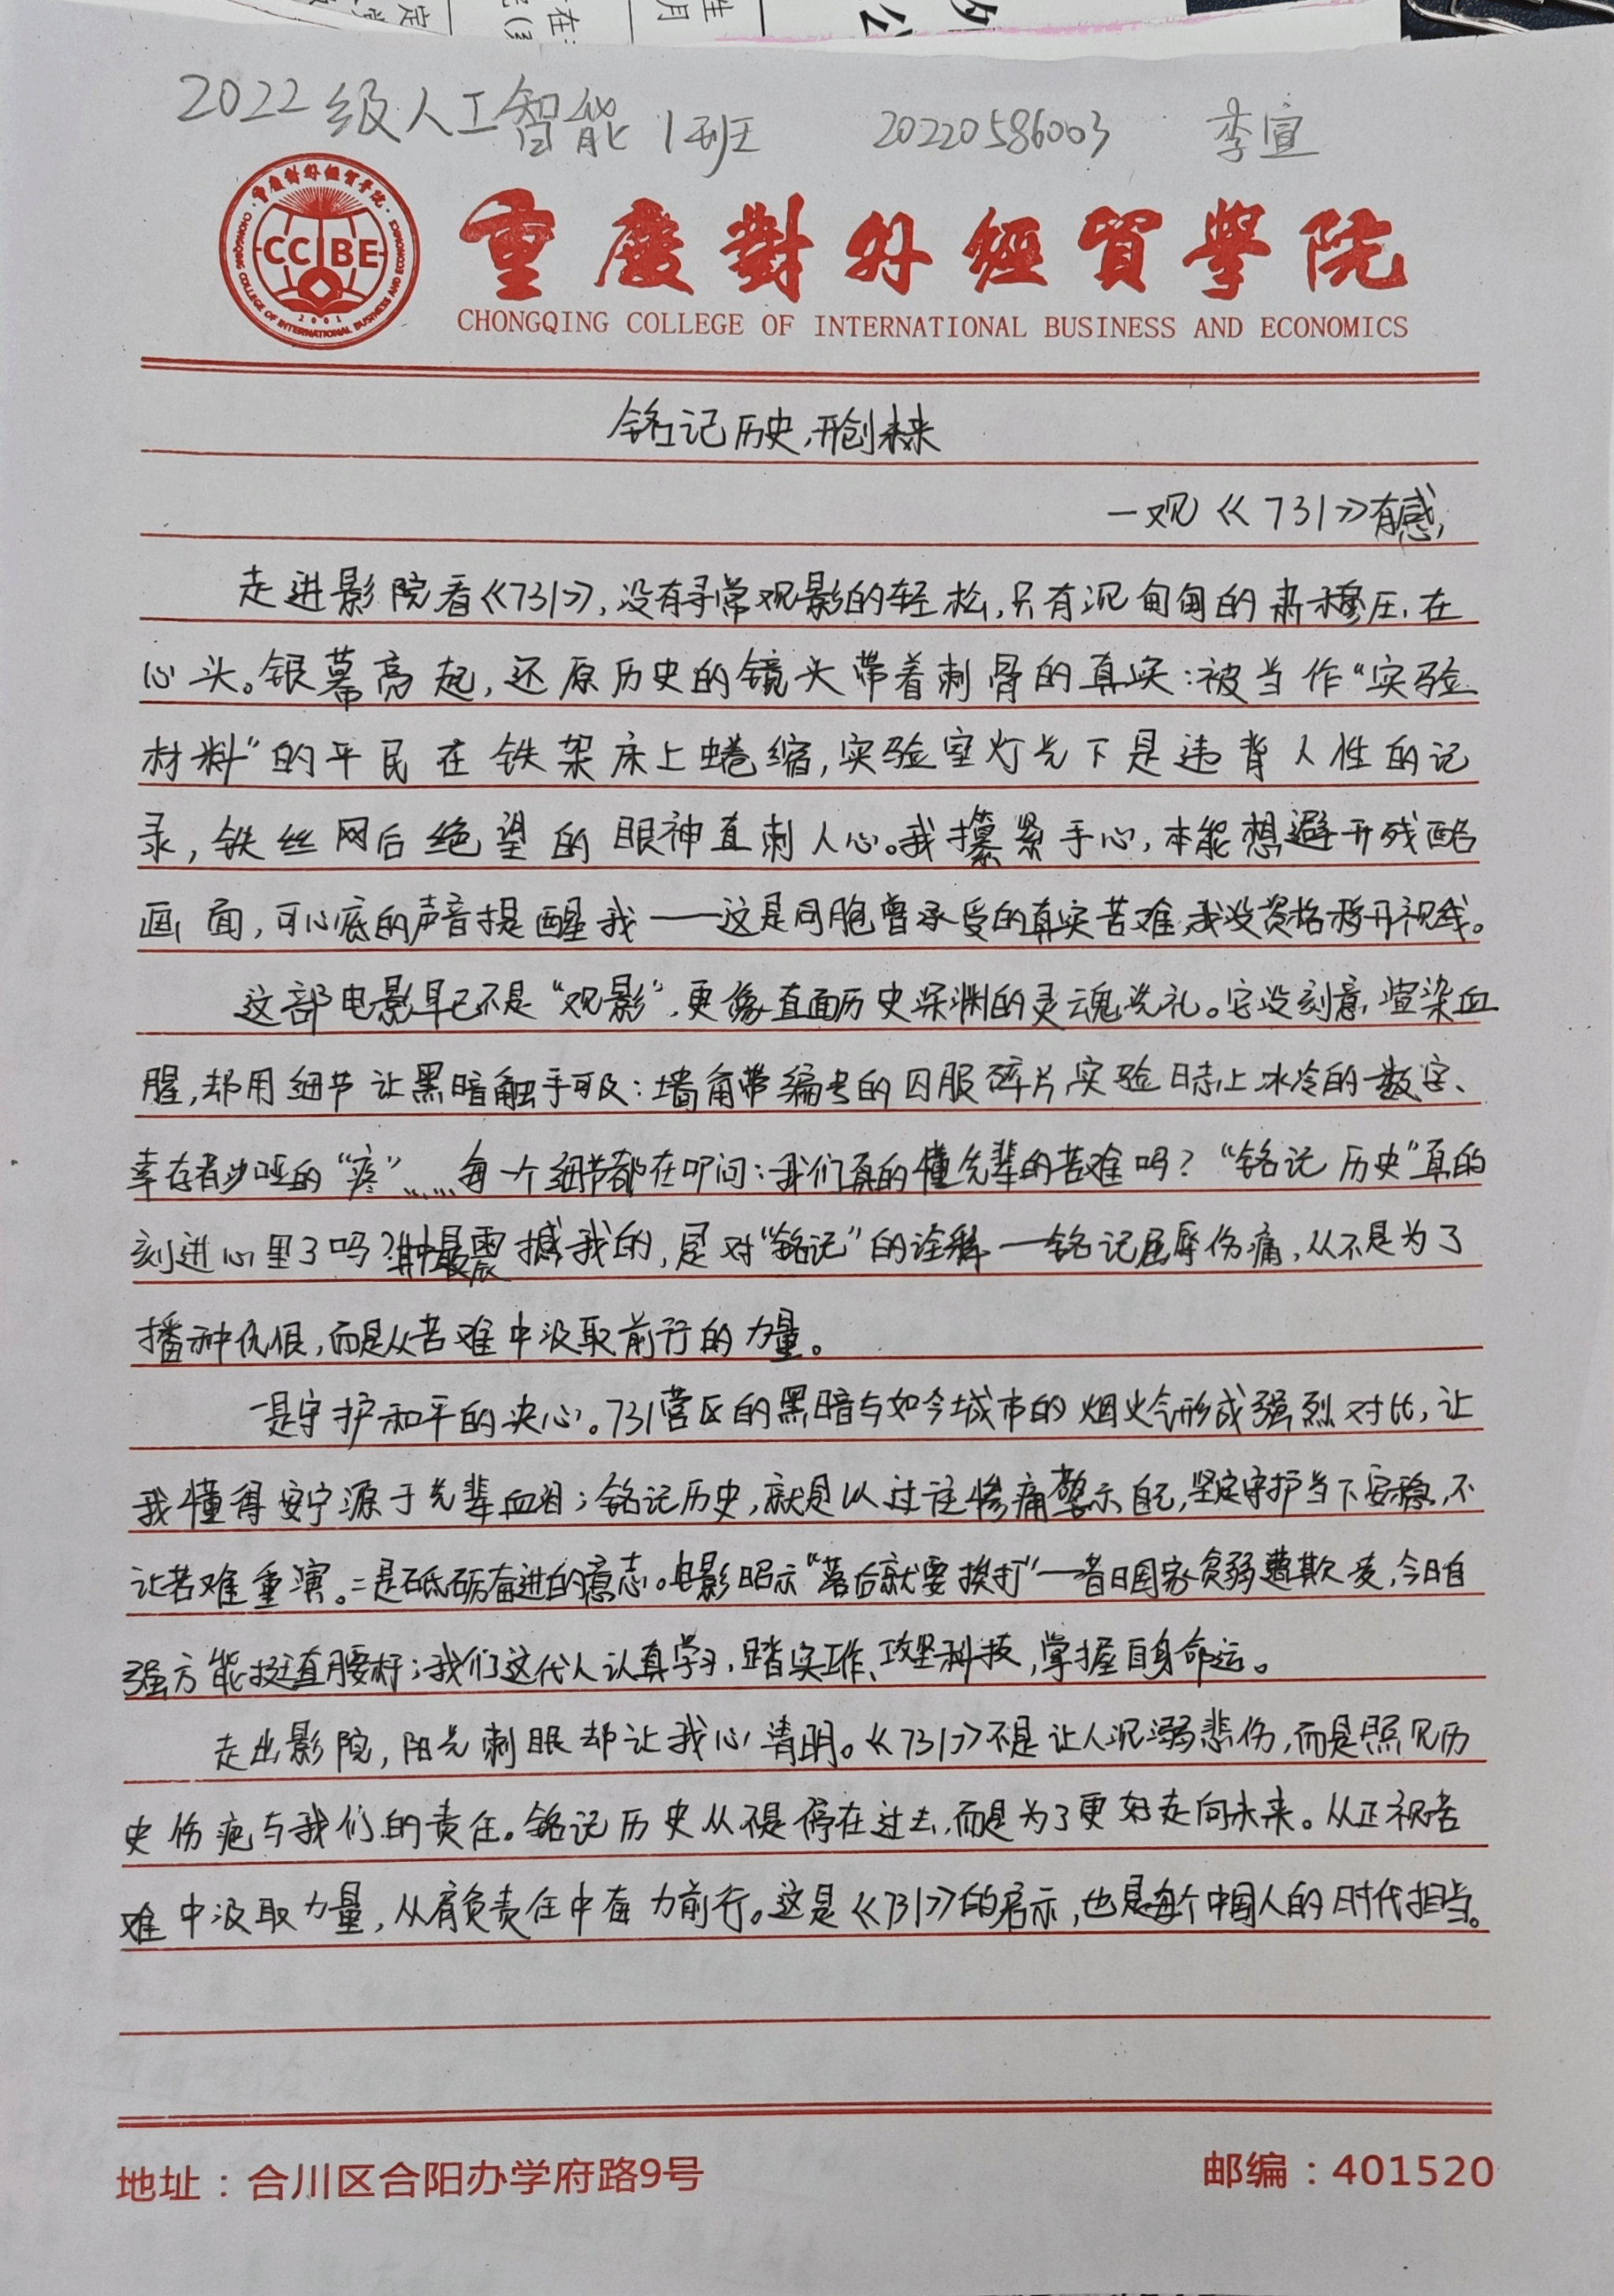 2022级人工智能1班 20220586003 李宣
重慶對外經貿學院
CCIBE
CHONGQING COLLEGE OF INTERNATIONAL BUSINESS AND ECONOMICS
铭记历史,开创未来
一观《731》有感
走进影院看《731》,没有寻常观影的轻松,只有沉甸甸的肃穆压在
心头。银幕亮起,还原历史的镜头带着刺骨的真实:被当作“实验
材料”的平民在铁架床上蜷缩,实验室灯光下是违背人性的记
录,铁丝网后绝望的眼神直刺人心。我攥紧手心,本能想避开残酷
画面,可心底的声音提醒我——这是同胞曾承受的真实苦难,我没资格移开视线。
这部电影早已不是“观影”,更像直面历史深渊的灵魂洗礼。它没刻意渲染血
腥,却用细节让黑暗触手可及:墙角带编号的囚服碎片,实验日志上冰冷的数字、
幸存者沙哑的“疼”……每一个细节都在叩问:我们真的懂先辈的苦难吗?“铭记历史”真的
刻进心里了吗?其中最震撼我的,是对“铭记”的诠释—铭记屈辱伤痛,从不是为了
播种仇恨,而是从苦难中汲取前行的力量。
一是守护和平的决心。731营区的黑暗与如今城市的烟火气形成强烈对比,让
我懂得安宁源于先辈血泪;铭记历史,就是以过往惨痛警示自己,坚定守护当下安稳,不
让苦难重演。二是砥砺奋进的意志。电影昭示“落后就要挨打”—昔日国家贫弱遭欺凌,今日自
强方能挺直腰杆;我们这代人认真学习,踏实工作、攻坚科技,掌握自身命运。
走出影院,阳光刺眼却让我心清明。《731》不是让人沉溺悲伤,而是照见历
史伤疤与我们的责任。铭记历史从不是停在过去,而是为了更好走向未来。从正视苦
难中汲取力量,从肩负责任中奋力前行。这是《731》的启示,也是每个中国人的时代担当。
地址:合川区合阳办学府路9号 邮编:401520